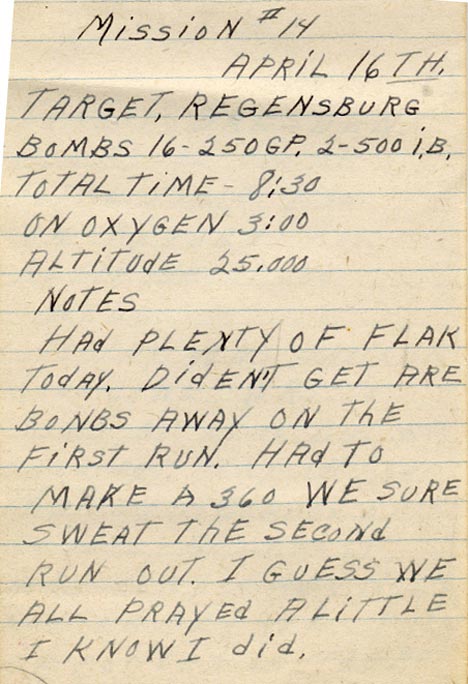 MISSION #14
APRIL 16TH.
TARGET, REGENSBURG
BOMBS 16-250GP, 2-500 I.B.
TOTAL TIME - 8:30
ON OXYGEN 3:00
ALTITUDE 25.000
NOTES
HAd PLENTY OF FLAK
TODAY. DIDEN'T GET ARE
BONBS AWAY ON THE
FIRST RUN. HAd TO
MAKE A 360 WE SURE
SWEAT THE SECONd
RUN OUT. I GUESS WE
ALL PRAYEd A LITTLE
I KNOW I did.